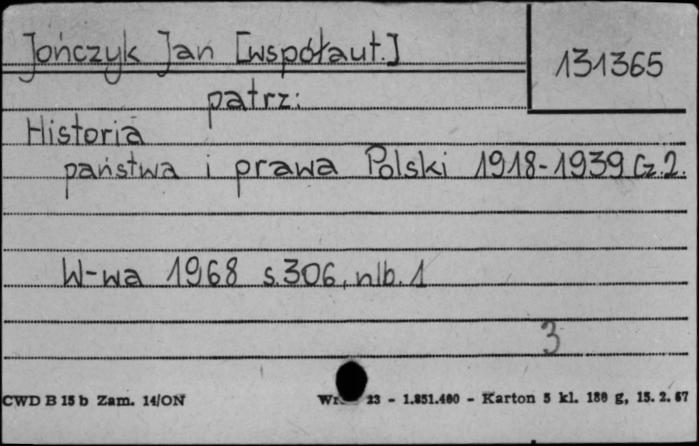 Jończyk Jan [współaut.]
131365
patrz:
Historia
państwa i prawa Polski 1918-1939 Cz.2.
W-wa 1968 s.306, nlb. 1
3
CWD B 15 b Zam. 14/ON
23 - 1.851.400 - Karton 5 kl. 180 g, 15. 2. 67